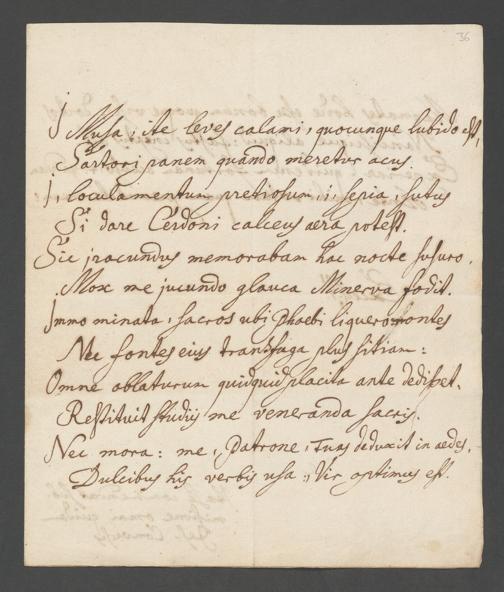 36
I Musa, ite leves calami, quocunque lubido est,
Sartori panem quando meretur acus.
I, loculamentum pretiosum, i, sepia, sutus
Si dare Cerdoni calceus aera potest.
Sic jracundus memorabam hac nocte susuro,
Mox me jucundo glauca Minerva fodit.
Immo minata, sacros ubi Phaebi liquero montes
Nec fontes eius transfuga plus sitiam:
Omne ablaturum quidquid placita ante dedisset.
Restituit studiis me veneranda sacris.
Nec mora: me, Patrone, Tuas deduxit in aedes,
Dulcibus his verbis usa: Vir optimus est.